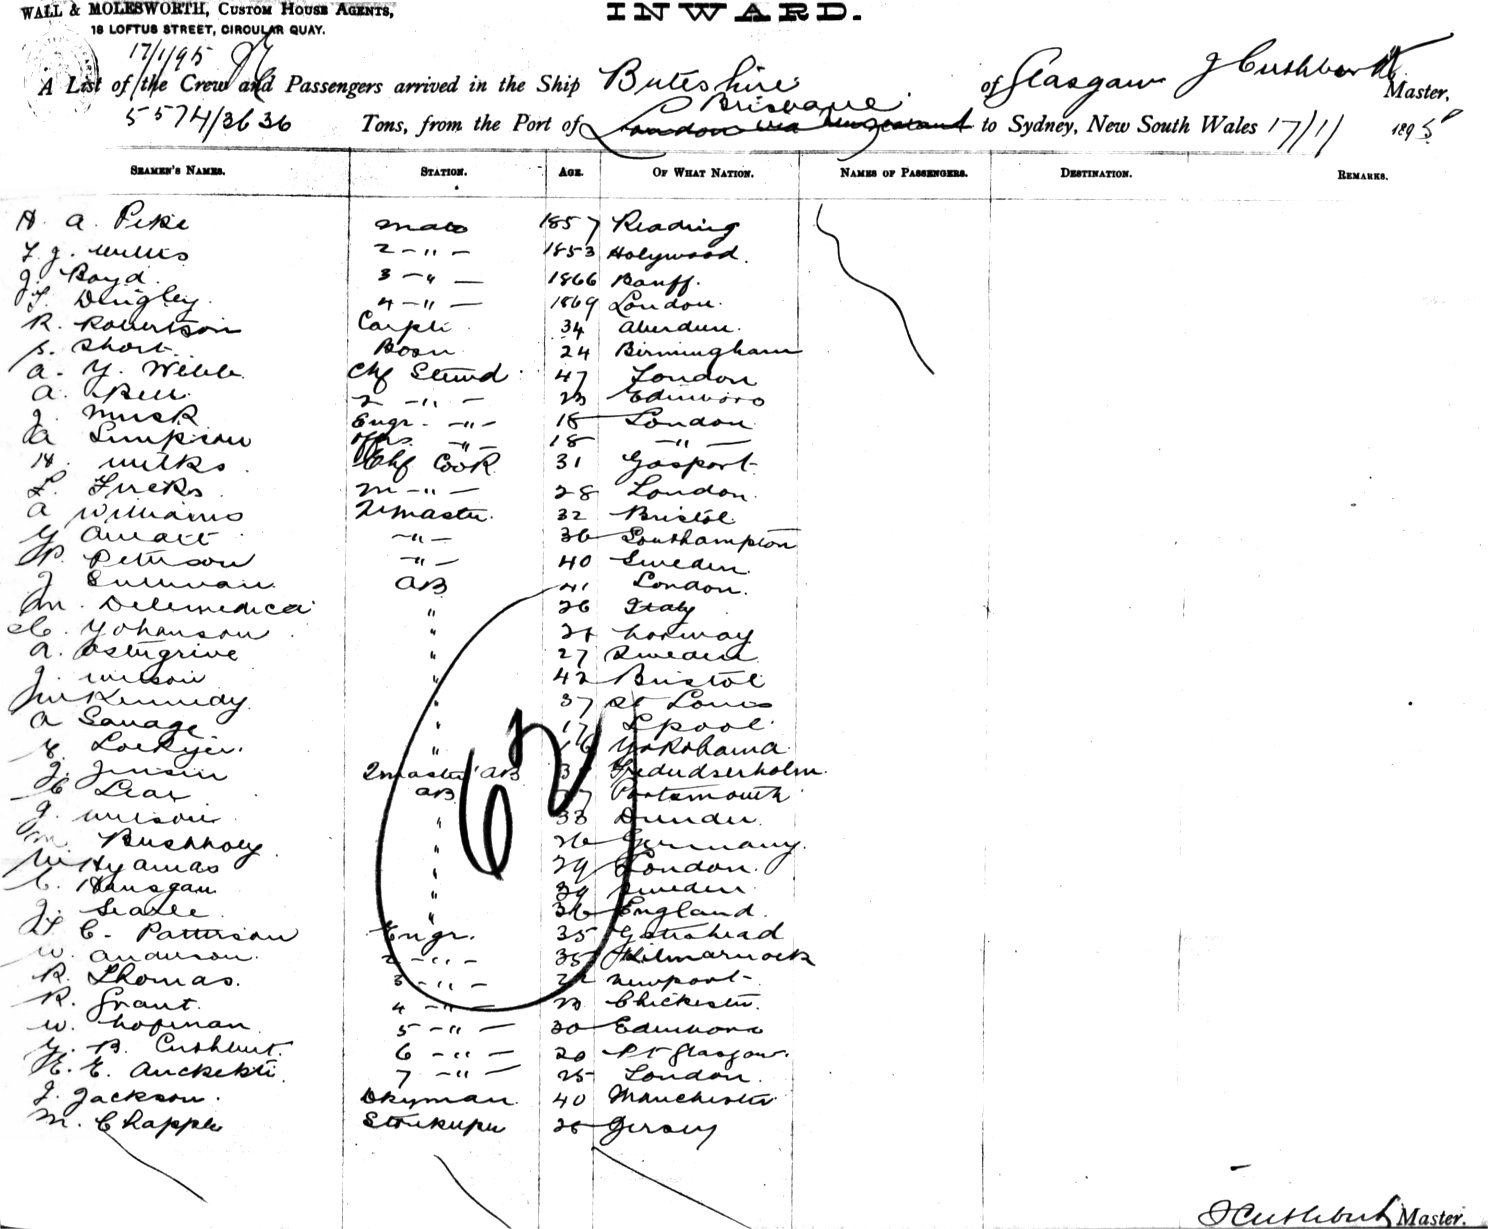 WALL & MOLESWORTH, CUSTOM HOUSE AGENTS,
18 LOFTUS STREET, CIRCULAR QUAY.
INWARD.
17/1/95
A List of the Crew and Passengers arrived in the Ship Buteshire of Glasgow J Cuthbert Master,
5574/3636 Tons, from the Port of London via Brisbane to Sydney, New South Wales 17/1/ 1895
SEAMEN'S NAMES. STATION. AGE. OF WHAT NATION. NAMES OF PASSENGERS. DESTINATION. REMARKS.
H. A. Pike Mate 1857 Reading
2 -"- 1853 Holywood.
J. Boyd. 3 -"- 1866 Banff.
Dingley. 4 -"- 1869 London.
R. Robertson 34 Aberdeen.
S. Short. Bosn 24 Birmingham
A. Y. Webb Chf Stewd 47 London
A. Bell 2 -"- 23 Edinboro
J. Musk Engr. -"- 18 London
A Simpson Offrs. -"- 18 -"-
H. Wilks. Chf Cook 31 Gosport
28 London.
A Williams 32 Bristol
-"- 36 Southampton
P. Petterson -"- 40 Sweden
J Sullivan AB 41 London.
M. Delemedica " 26 Italy
C. Yohanson " Norway
A. " 27 Sweden
J. Wilson " 42 Bristol
W Kennedy " 37 St Louis
A Savage " 17 Lpool
E. Lockyer. " 16 Yokohama
J. Jensen AB
C Lear AB Portsmouth
J. Wilson " 33 Dundee
M. " 26 Germany.
W Hyams " 29 London.
C. " 39 Sweden
J. Searle " 36 England.
C. Patterson Engr. 35 Gateshead
W. Anderson. 2 -"- 35 Kilmarnock
R. Thomas. 3 -"- Newport
R. Grant. 4 -"- 23 Chichester.
W. Hofman 5 -"- 30 Edinboro
B. Cuthbert. 6 -"- 20 Pt Glasgow.
E. E. 7 -"- 25 London.
J. Jackson. Dkyman 40 Manchester
M. Chapple Storekeeper 26 Jersey
62
J Cuthbert Master.